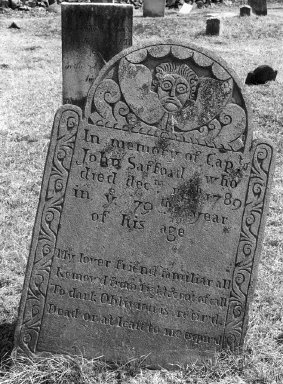 In memory of Capt
John Safford who
died Decm 1789
in ye 79 year
of his age
My lover friend familiar all
Remov'd from sight & out of call
To dark Oblivion is retir'd
Dead or at least to me expir'd